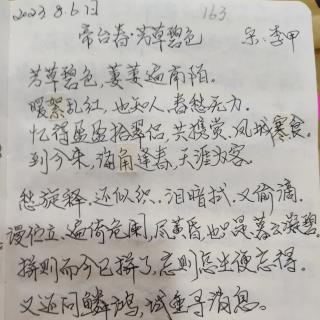 2023.8.6日
163
帝台春·芳草碧色 宋·李甲
芳草碧色,萋萋遍南陌。
暖絮乱红,也知人、春愁无力。
忆得盈盈拾翠侣,共携赏、凤城寒食。
到今来,海角逢春,天涯为客。
愁旋释。还似织。泪暗拭。又偷滴。
谩伫立、遍倚危阑,尽黄昏,也只是暮云凝碧。
拚则而今已拚了,忘则怎生便忘得。
又还问鳞鸿,试重寻消息。